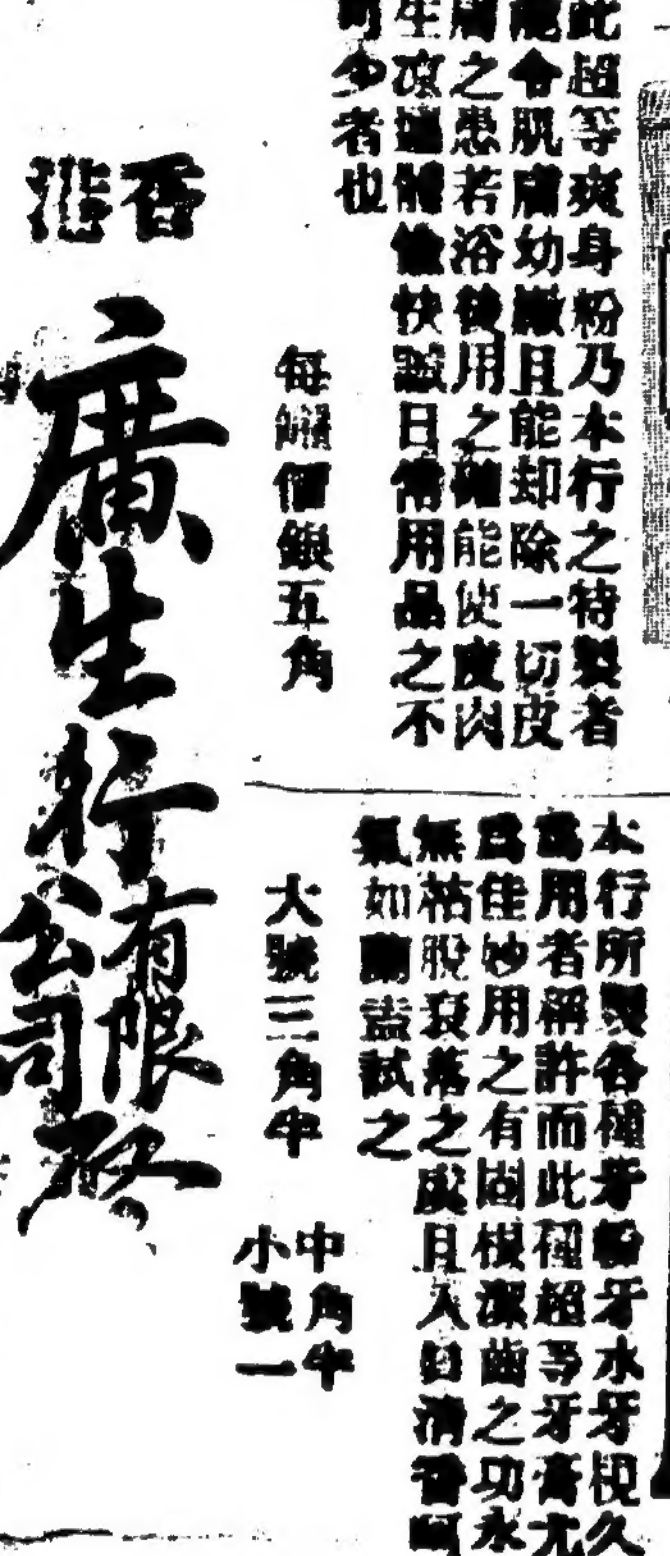 此超等爽身粉乃本行之特製者
能令肌膚幼嫩且能却除一切皮
膚之患若浴後用之確能使皮肉
生凉遍體愉快誠日常用品之不
可少者也
每罐價銀五角
本行所製各種牙粉牙水牙梘久
爲用者稱許而此種超等牙膏尤
爲佳妙用之有固根潔齒之功永
無枯脫衰落之虞且入口清香
氣如蘭盍試之
大號三角半
中角半
小號一
香港
廣生行有限公司啓